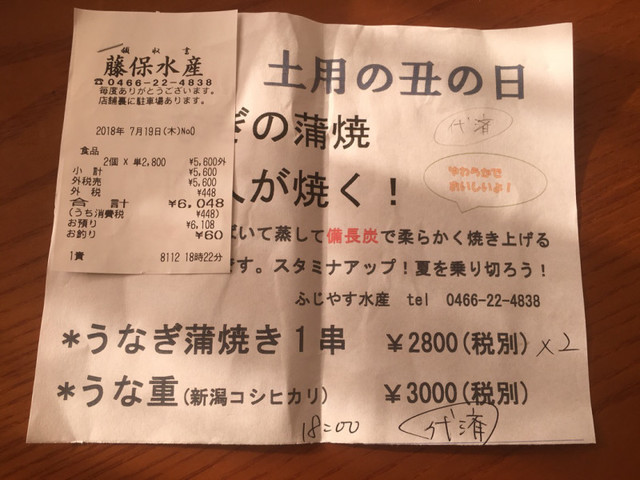 領収書
藤保水産
☎0466-22-4838
毎度ありがとうございます。
店舗裏に駐車場あります。
2018年 7月19日(木)No0
食品
2個 X 単2,800 ¥5,600外
小計 ¥5,600
外税売 ¥5,600
外税 ¥448
合計 ¥6,048
(うち消費税 ¥448)
お預り ¥6,108
お釣り ¥60
1責 8112 18時22分
土用の丑の日
ぎの蒲焼
代済
やわらかで
おいしいよ!
人が焼く!
いて蒸して備長炭で柔らかく焼き上げる
です。スタミナアップ!夏を乗り切ろう!
ふじやす水産 tel 0466-22-4838
*うなぎ蒲焼き1串 ¥2800(税別) ×2
*うな重(新潟コシヒカリ) ¥3000(税別)
18:00 代済